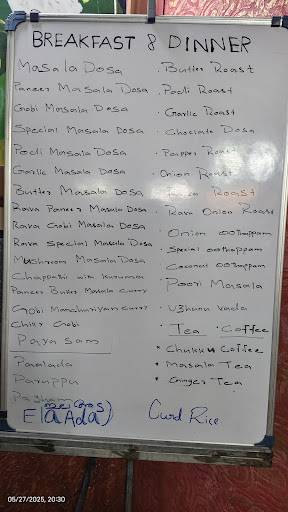 BREAKFAST & DINNER
Masala Dosa
Paneer Masala Dosa
Gobi Masala Dosa
Special Masala Dosa
Podi Masala Dosa
Garlic Masala Dosa
Butter Masala Dosa
Rava Paneer Masala Dosa
Rava Gobi Masala Dosa
Rava Special Masala Dosa
Mushroom Masala Dosa
Chappathi with kuruma
Paneer Butter Masala Curry
Gobi Manchuriyan Curry
Chilly Gobi
Payasam
Paalada
Paruppu
Payasam
Ela Ada
Curd Rice
. Butter Roast
. Podi Roast
. Garlic Roast
. Choclate Dosa
. Papper Roast
. Onion Roast
Roast
. Rava Onion Roast
. Onion oothappam
. Special oothappam
. Coconut oothappam
. Poori Masala
. Uzhunu vada
. Tea . Coffee
* Chukku Coffee
* Masala Tea
* Ginger Tea
05/27/2025, 20:30